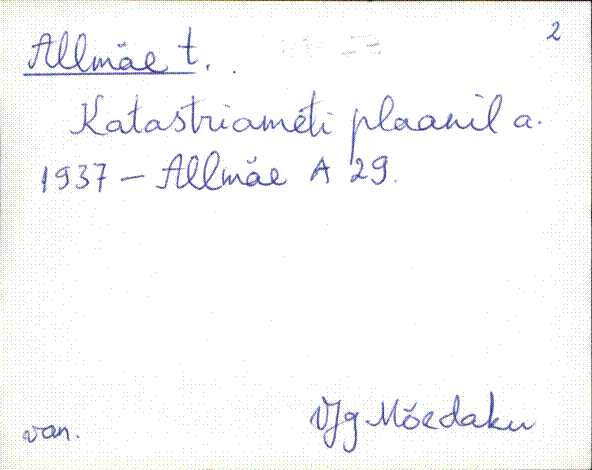 2
Allmäe t.
Katastriameti plaanil a.
1937 - Allmäe A 29.
van. VJg Mõedaku